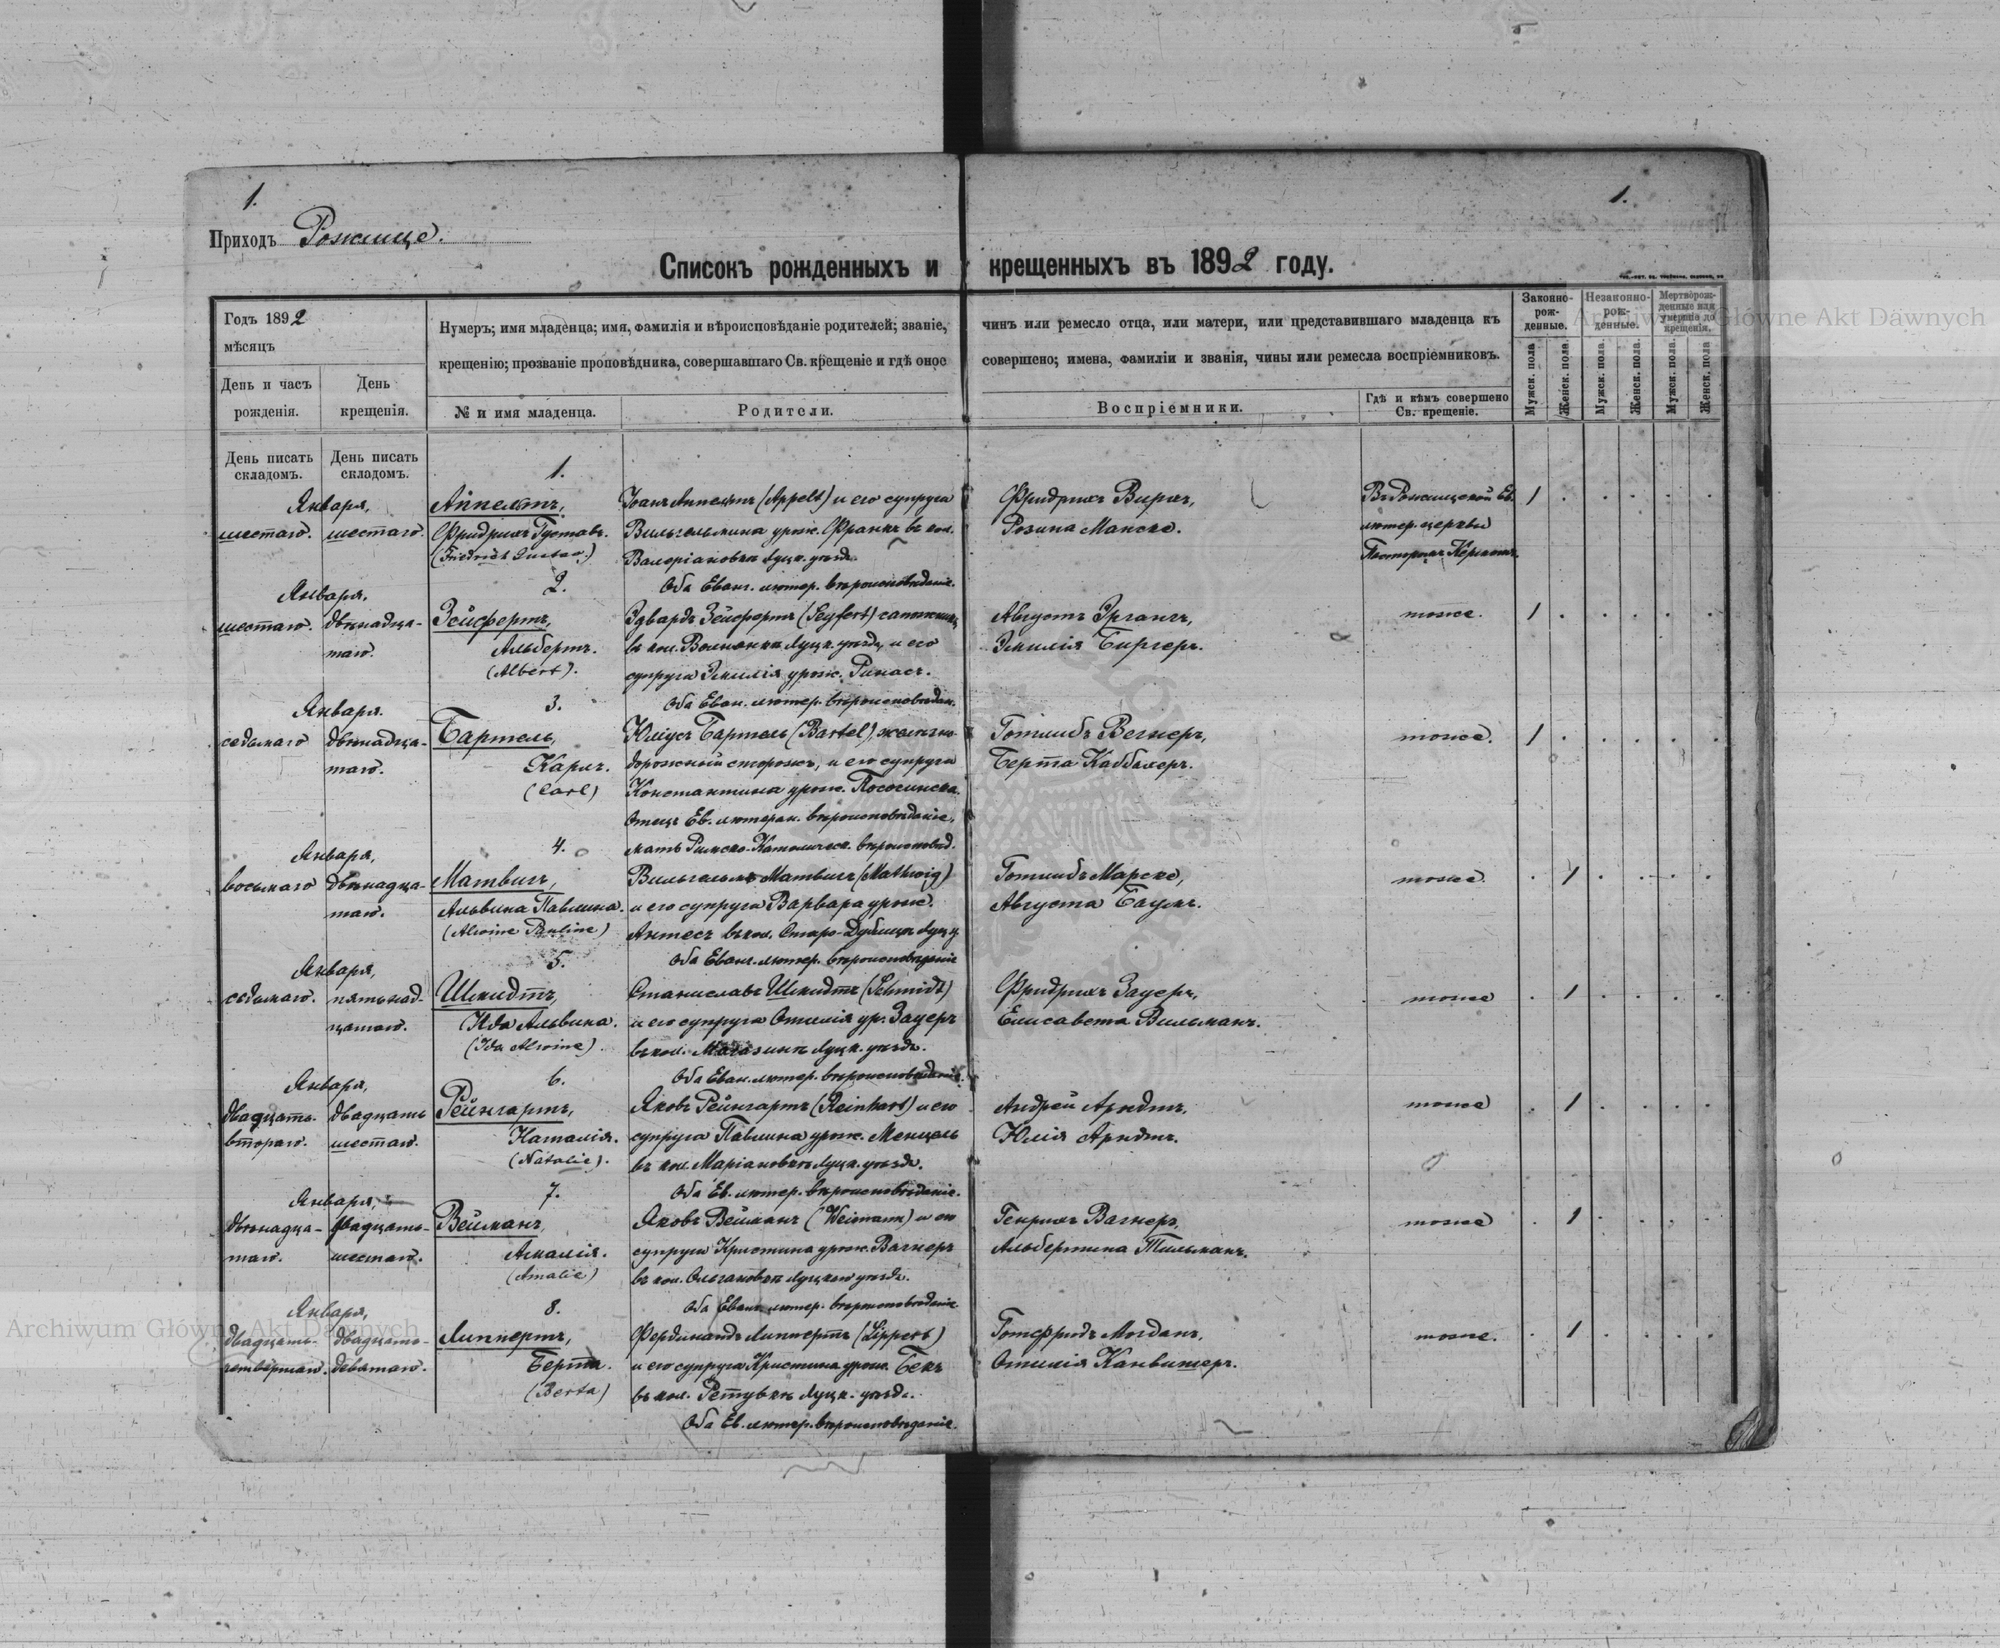 1.
1.
Приходъ Рожище.
Списокъ рожденныхъ и крещенныхъ въ 1892 году.
Годъ 1892
мѣсяцъ
День и часъ рожденія.
День крещенія.
Нумеръ; имя младенца; имя, фамилія и вѣроисповѣданіе родителей; званіе, чинъ или ремесло отца, или матери, или представившаго младенца къ
крещенію; прозваніе проповѣдника, совершавшаго Св. крещеніе и гдѣ оное совершено; имена, фамиліи и званія, чины или ремесла воспріемниковъ.
№ и имя младенца.
Родители.
Воспріемники.
Гдѣ и кѣмъ совершено
Св. крещеніе.
Законно-рож-денные.
Незаконно-рож-денные.
Мертворож-денные или умершіе до крещенія.
Мужск. пола
Женск. пола.
Мужск. пола.
Женск. пола.
Мужск. пола.
Женск. пола
День писать складомъ.
День писать складомъ.
1.
Января,
шестаго. шестаго
Аппельтъ,
Фридрихъ Густавъ.
(Friedrich Gustav.)
Іоанъ Аппельтъ (Appelt) и его супруга
Вильгельмина урож. Франкъ въ кол.
Валеріановкѣ Луцк. уѣзда.
Оба Еванг. лютер. вѣроисповѣданіе.
Фридрихъ Вирхъ,
Розина Манске.
Въ Рожищской Ев.
лютер. церкви
Пасторомъ
1
2.
Января,
шестаго. двѣнадца-
таго.
Зейфертъ,
Альбертъ.
(Albert).
Эдвардъ Зейфертъ (Seyfert) сапожникъ
въ кол. Луцк. уѣзда, и его
супруга Эмилія урож. Ринасъ.
Оба Еван. лютер. вѣроисповѣдан.
Августъ Эргангъ,
Эмилія Биргеръ.
тоже.
1
3.
Января.
седьмаго двѣнадца-
таго.
Бартель,
Карлъ.
(Carl)
Юліусъ Бартель (Bartel), желѣзно-
дорожный сторожъ, и его супруга
Константина урож. Пососинска.
Отецъ Ев. лютеран. вѣроисповѣданіе,
мать Римско-Католическ. вѣроисповѣд.
Готлибъ Вегнеръ,
Берта Каббалеръ.
тоже.
1
4.
Января,
восьмаго двѣнадца-
таго.
Матвигъ,
Альвина Павлина.
(Alwine Pauline)
Вильгельмъ Матвигъ (Mathwig)
и его супруга Варвара урож.
Антесъ въ кол. Старо-
Оба Еванг. лютер. вѣроисповѣданіе
Готлибъ Марске,
Августа Баумъ.
тоже.
1
5.
Января,
седьмаго. пятьнад-
цатаго.
Шмидтъ,
Ида Альвина.
(Ida Alwine).
Станиславъ Шмидтъ (Schmidt)
и его супруга Отилія ур. Зауеръ
въ кол. Магазинкѣ Луцк. уѣзда.
Оба Еван. лютер. вѣроисповѣданіе.
Фридрихъ Зауеръ,
Елисавета Вильманъ.
тоже
1
6.
Января,
двадцать двадцать
втораго. шестаго.
Рейнгартъ,
Наталія.
(Natalie).
Яковъ Рейнгартъ (Reinhart) и его
супруга Павлина урож. Менцель
въ кол. Маріановкѣ Луцк. уѣзда.
Оба Ев. лютер. вѣроисповѣданіе.
Андрей Арндтъ.
Юлія Арндтъ.
тоже
1
7.
Января,
двѣнадца- двадцать-
таго. шестаго.
Вейманъ,
Амалія.
(Amalie)
Яковъ Вейманъ (Weimann) и его
супруга Христина урож. Вагнеръ
въ кол. Ольгановкѣ Луцкаго уѣзда.
Оба Еванг. лютер. вѣроисповѣданіе
Генрихъ Вагнеръ,
Альбертина Тильманъ.
тоже
1
8.
Января,
двадцать- двадцать-
четвертаго. девятаго.
Липпертъ,
Берта.
(Berta)
Фердинандъ Липпертъ (Lippert)
и его супруга Христина урож. Бекъ
въ кол. Луцк. уѣзда.
Оба Ев. лютер. вѣроисповѣданіе.
Готфридъ Могданъ,
Отилія Канвишеръ.
тоже.
1
Archiwum Główne Akt Dawnych
Archiwum Główne Akt Dawnych